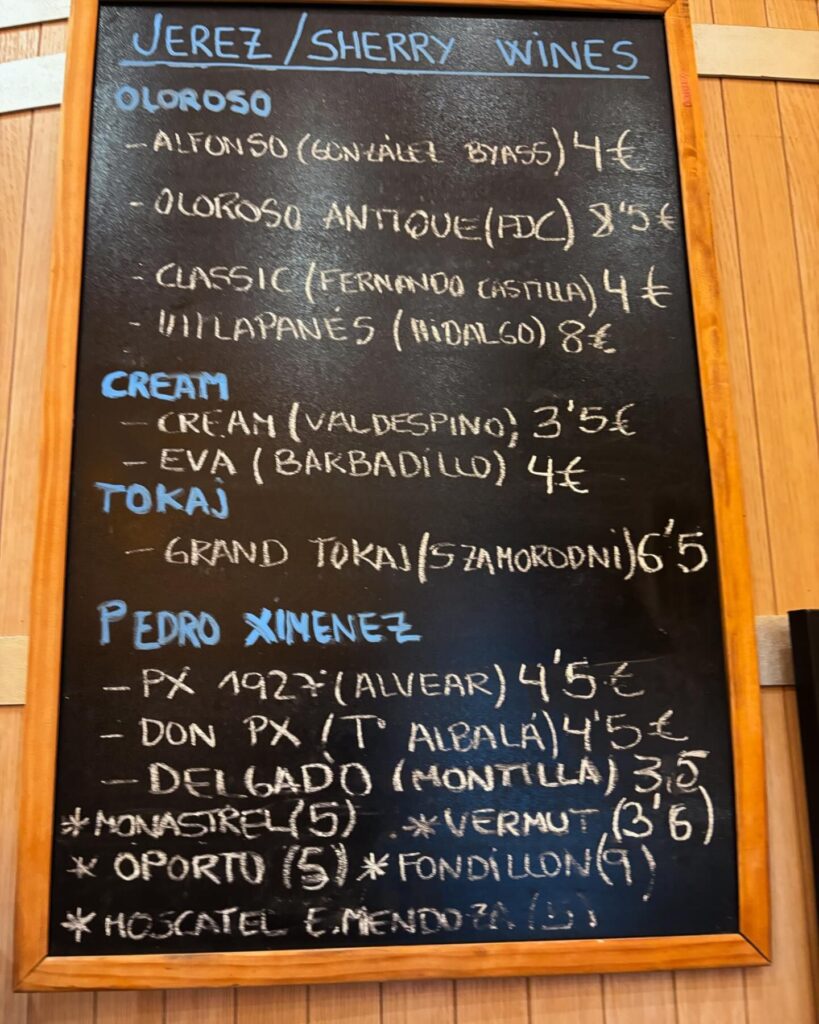 JEREZ/SHERRY WINES
OLOROSO
- ALFONSO (GONZÁLEZ BYASS) 4€
- OLOROSO ANTIQUE (FDC) 8'5€
- CLASSIC (FERNANDO CASTILLA) 4€
- VILLAPANÉS (HIDALGO) 8€
CREAM
- CREAM (VALDESPINO) 3'5€
- EVA (BARBADILLO) 4€
TOKAJ
- GRAND TOKAJ (SZAMORODNI) 6'5
PEDRO XIMENEZ
- PX 1927 (ALVEAR) 4'5€
- DON PX (Tº ALBALÁ) 4'5€
- DELGADO (MONTILLA) 3,5
*MONASTREL (5) *VERMUT (3'6)
* OPORTO (5) * FONDILLON (9)
* MOSCATEL E.MENDOZA